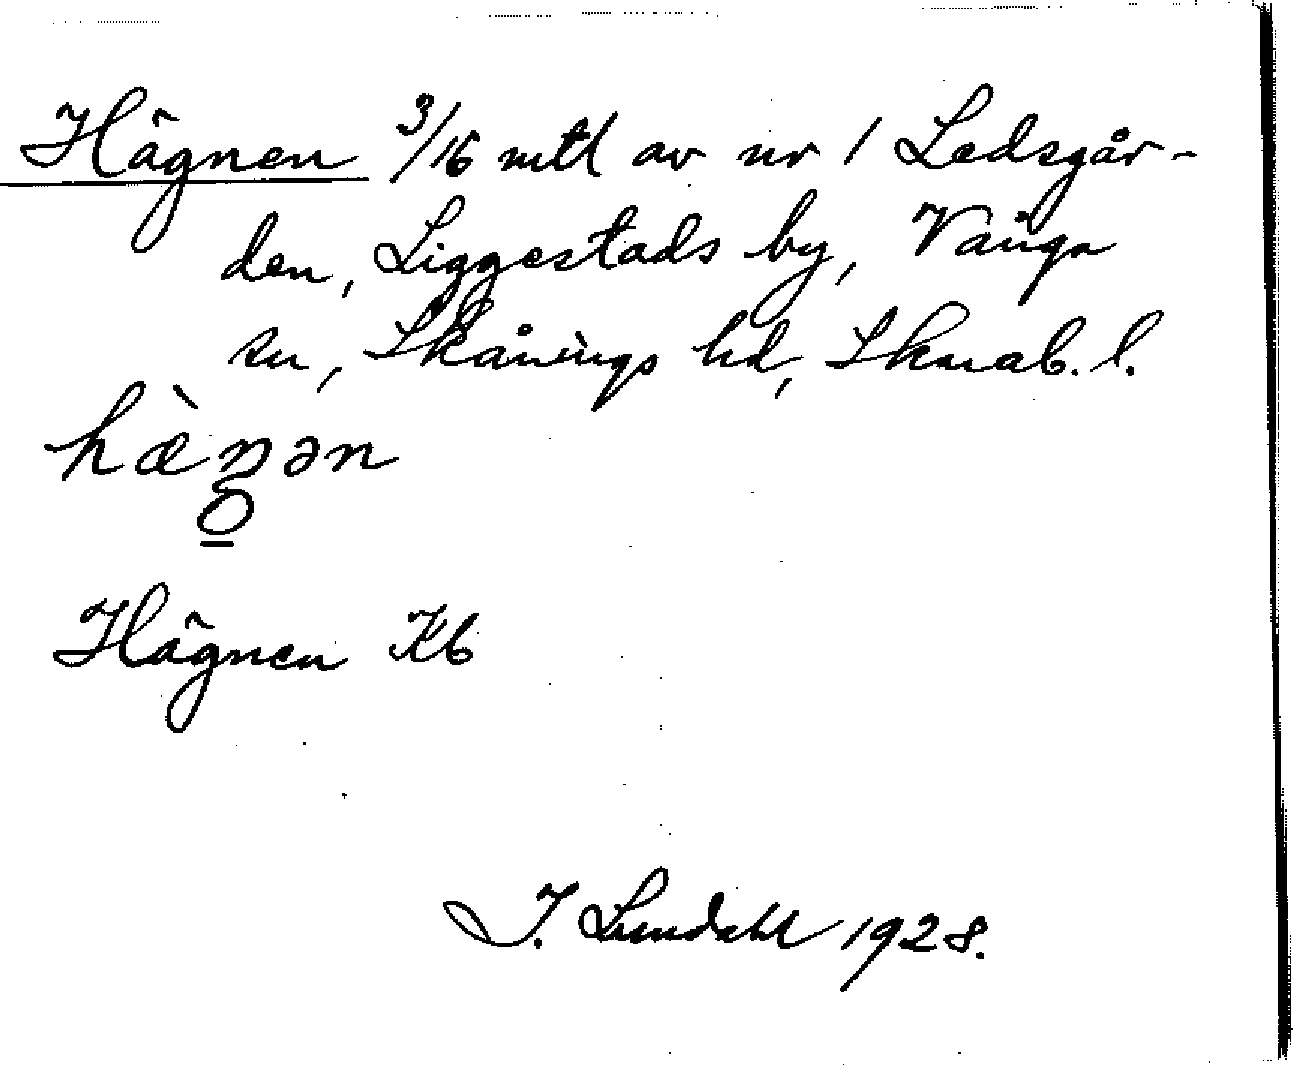 Hägnen 3/16 mtl av nr 1 Ledsgår-
den, Liggestads by, Vånga
sn, Skånings hd, Skarab. l.
hæ̀ŋən
o
Hägnen Kb
I. Lundahl 1928.